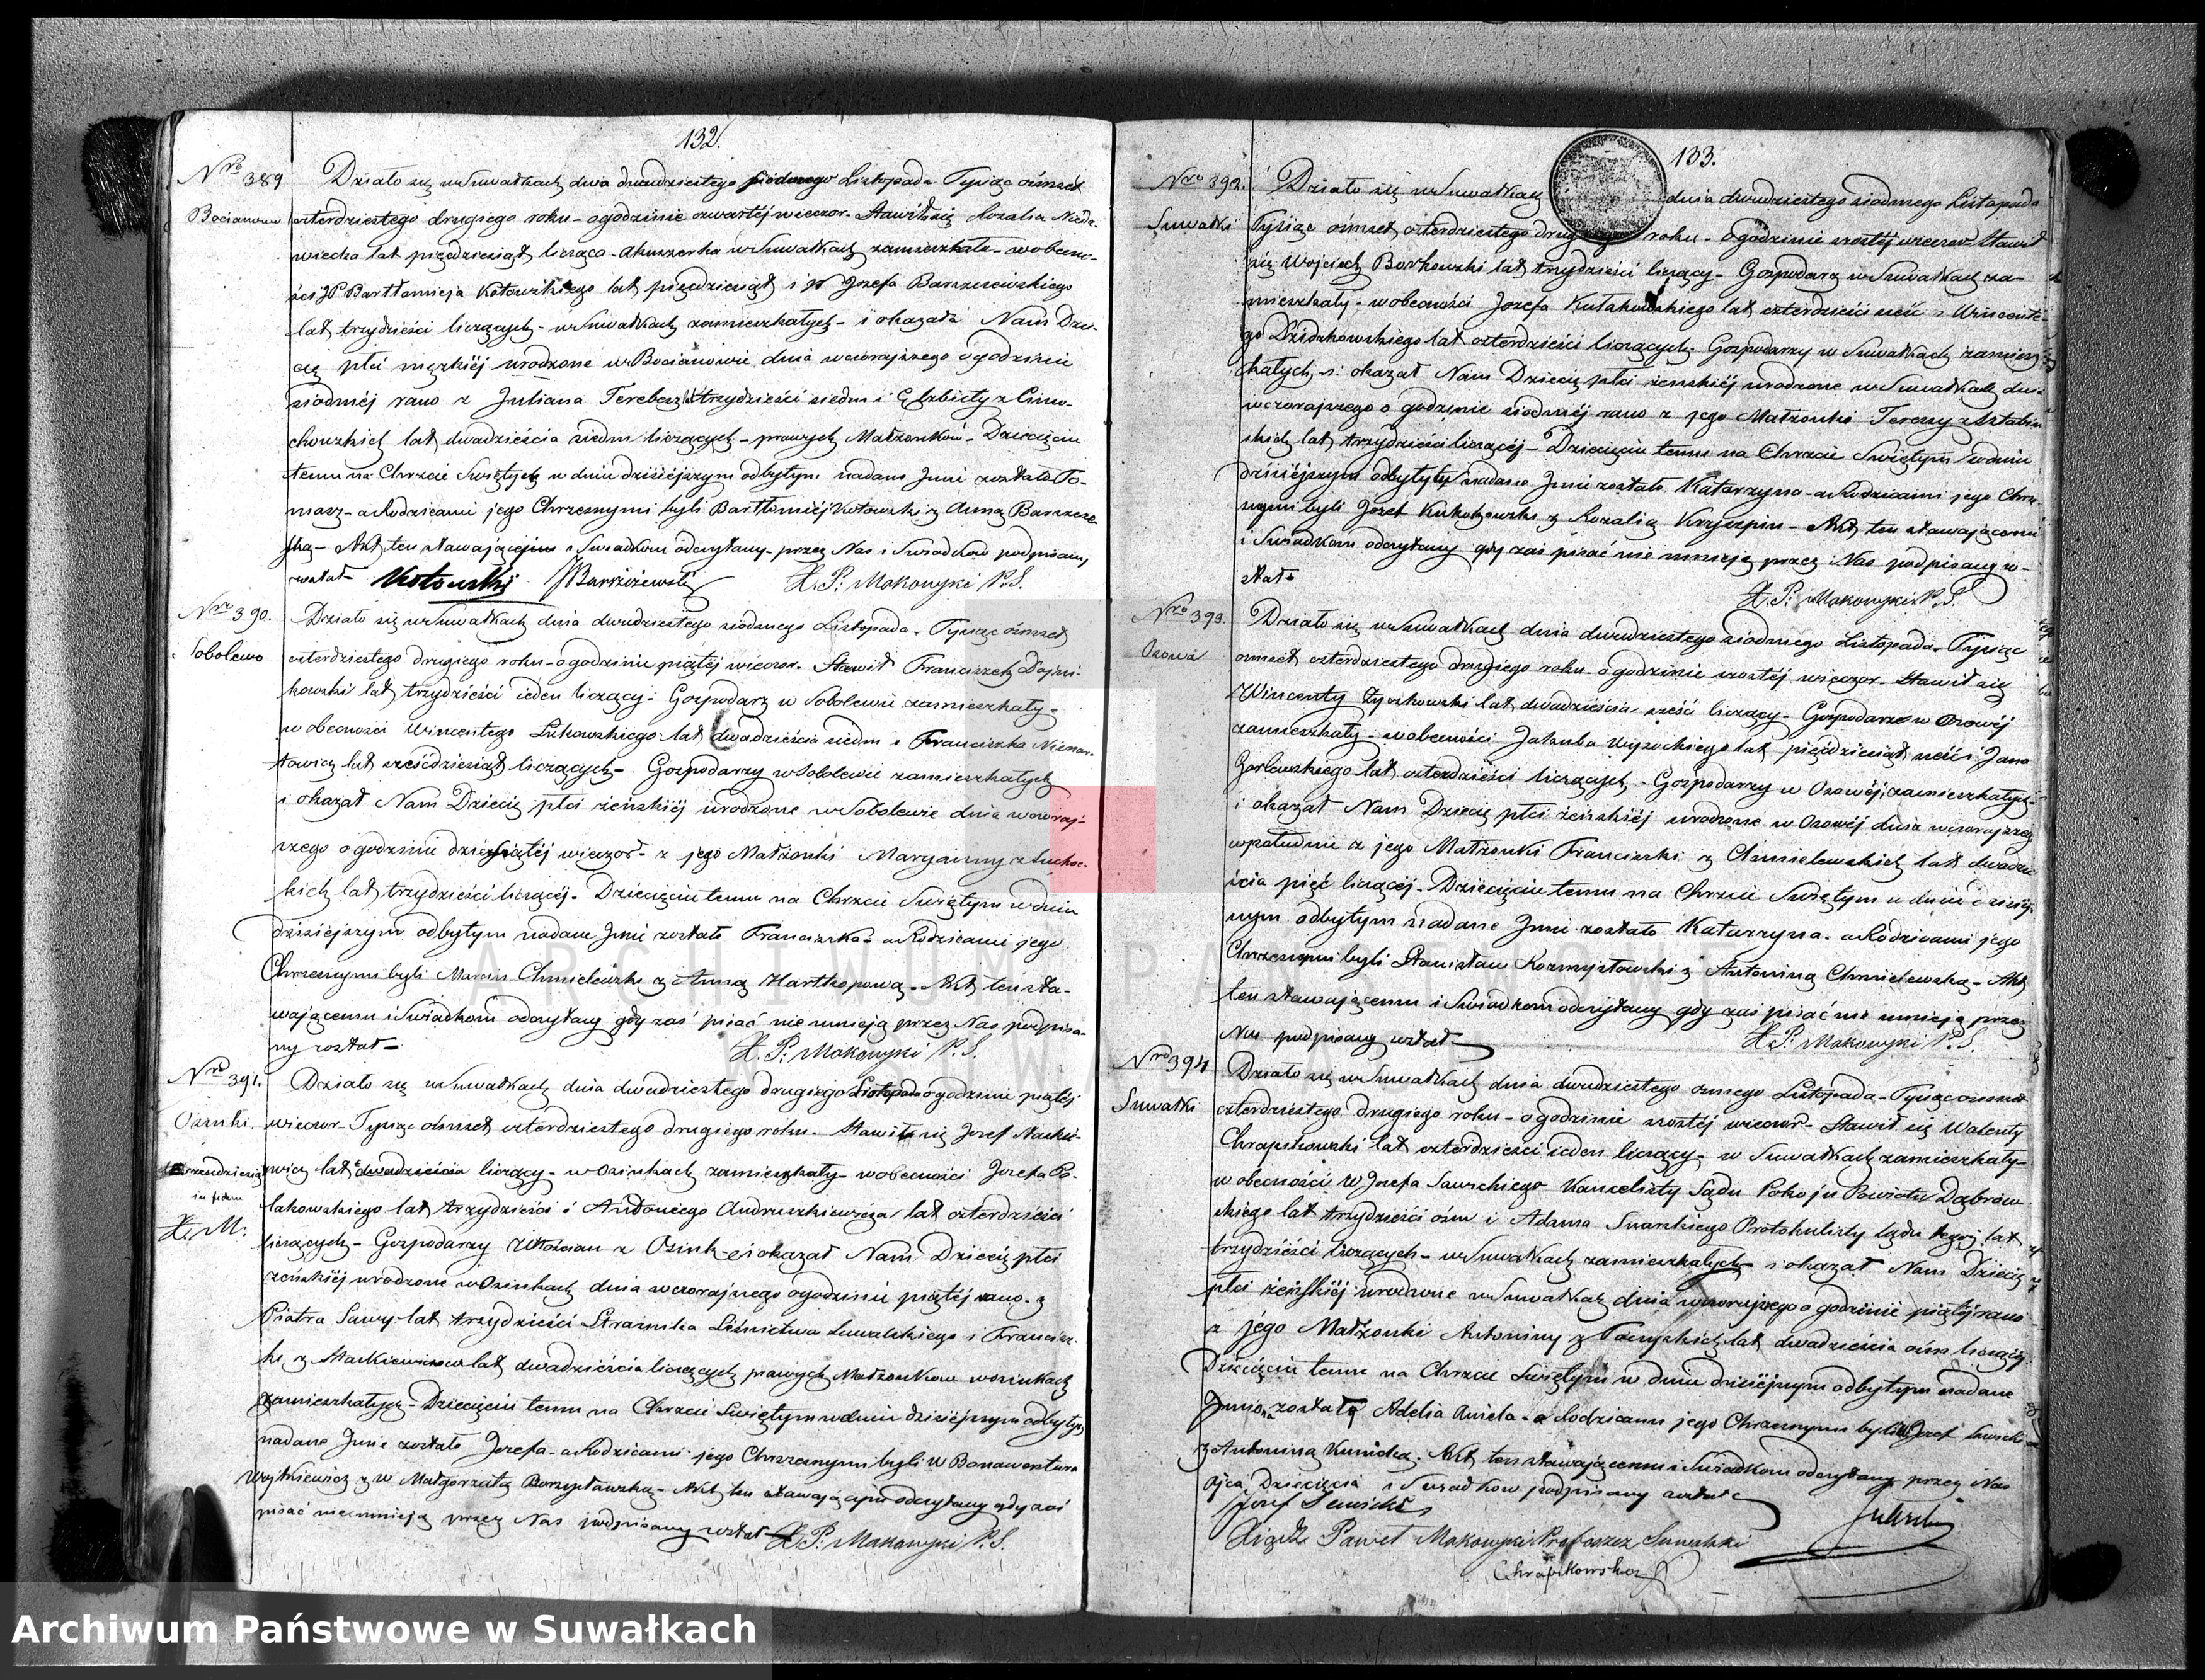 132.
Nro 389
Bocianowo
Działo się w Suwałkach dnia dwudziestego siódmego Listopada Tysiąc ośmset
czterdziestego drugiego roku - o godzinie czwartej wieczor - Stawiła się Rozalia Niedz-
wiecka lat pięćdziesiąt licząca - Akuszerka w Suwałkach zamieszkała - w obecno-
ści JP Bartłomieja Kotowskiego lat pięćdziesiąt i JP Jozefa Barszczewskiego
lat trzydzieści liczących - w Suwałkach zamieszkałych - i okazała Nam Dzie-
cię płci męzkiéj urodzone w Bocianowie dnia wczorajszego o godzinie
siodméj rano z Juliana Terebesz trzydzieści siedm i Elzbiety z Cimo-
chowskich lat dwadzieścia siedm liczących - prawych Małżonków - Dziecięciu
temu na Chrzcie Swiętych w dniu dzisiéjszym odbytym nadano Jmie zostało To-
masz - a Rodzicami jego Chrzesnymi byli Bartłomiéj Kotowski z Anną Barszcze
ską - Akt ten stawającéjmu i Swiadkom odczytany przez Nas i Swiadków podpisany
został - Kotowski JBarszczewski X. P: Makowski P.S.
Nro 390.
Sobolewo
Działo się w Suwałkach dnia dwudziestego siodmego Listopada - Tysiąc ośmset
czterdziestego drugiego roku - o godzinie piątéj wieczor - Stawił Franciszek Dajni-
kowski lat trzydzieści ieden liczący - Gospodarz w Sobolewie zamieszkały -
w obecności Wincentego Lukowskiego lat dwadzieścia siedm i Franciszka
towicz lat sześćdziesiąt liczących - Gospodarzy w Sobolewie zamieszkałych
i okazał Nam Dziecię płci żeńskiéj urodzone w Sobolewie dnia wczoraj-
szego o godzinie dziewiątéj wieczor - z jego Małżonki Maryanny z Suchoc-
kich lat trzydzieści liczącéj - Dziecięciu temu na Chrzcie Swiętym w dniu
dzisiéjszym odbytym nadane Jmie zostało Franciszka - a Rodzicami jego
Chrzesnymi byli Marcin Chmielewski z Anną Hartkopową - Akt ten sta-
wającemu i Swiadkom odczytany gdy zaś pisać nie umieją przez Nas podpisa-
ny został - X. P: Makowski P.S.
Nro 391.
Osinki.
trzydzieści
jeden
X. M:
Działo się w Suwałkach dnia dwudziestego drugiego Listopada o godzinie piątéj
wieczor - Tysiąc ośmset czterdziestego drugiego roku - Stawił się Jozef Mackie-
wicz lat dwadzieścia liczący - w Osinkach zamieszkały - w obecności Jozefa Po-
lakowskiego lat trzydzieści i Antoniego Andruszkiewicza lat czterdzieści
liczących - Gospodarzy Włościan z Osinki - i okazał Nam Dziecię płci
żeńskiéj urodzone w Osinkach dnia wczorajszego o godzinie piątéj rano - z
Piotra Sawy lat trzydzieści Strażnika Leśnictwa Suwalskiego i Francisz-
ki z Mackiewiczow lat dwadzieścia liczących prawych Małżonków w Osinkach
zamieszkałych - Dziecięciu temu na Chrzcie Swiętym w dniu dzisiéjszym odbytym
nadano Jmie zostało Jozefa - a Rodzicami jego Chrzesnymi byli W Bonawentura
Woytkiewicz z W Małgorzatą Borzysławską - Akt ten stawającym odczytany gdy zaś
pisać nie umieją przez Nas podpisany został X. P: Makowski P.S.
133.
Nro 392.
Suwałki
Działo się w Suwałkach dnia dwudziestego siodmego Listopada
Tysiąc ośmset czterdziestego drugiego roku - o godzinie szostéj wieczor Stawił
się Wojciech Borkowski lat trzydzieści liczący - Gospodarz w Suwałkach za-
mieszkały - w obecności Jozefa Kułakowskiego lat czterdzieści sześć i Wincente-
go Dzidzkowskiego lat czterdzieści liczących - Gospodarzy w Suwałkach zamiesz
kałych - i okazał Nam Dziecię płci żeńskiéj urodzone w Suwałkach dnia
wczorajszego o godzinie siodméj rano z jego Małżonki Teressy z Sztabin
skich lat trzydzieści liczącéj - Dziecięciu temu na Chrzcie Swiętym w dniu
dzisiéjszym odbytym nadano Jmie zostało Katarzyna - a Rodzicami jego Chrze
snymi byli Jozef z Rozalią Krzyczpin - Akt ten stawającemu
i Swiadkom odczytany gdy zaś pisać nie umieją przez Nas podpisany zo-
stał - X. P: Makowski P.S.
Nro 393.
Osowa
Działo się w Suwałkach dnia dwudziestego siodmego Listopada - Tysiąc
osmset czterdziestego drugiego roku - o godzinie szostéj wieczor - Stawił się
Wincenty Zyczkowski lat dwadzieścia sześć liczący - Gospodarz w Osowéj
zamieszkały - w obecności Jakuba Wysockiego lat pięćdziesiąt sześć i Jana
Gorlewskiego lat czterdzieści liczących - Gospodarzy w Osowéj zamieszkałych
i okazał Nam Dziecię płci żeńskiéj urodzone w Osowéj dnia wczorajszego
w południe z jego Małżonki Franciszki z Chmielewskich lat dwadzie
ścia pięć liczącéj - Dziecięciu temu na Chrzcie Swiętym w dniu dzisiéj
szym odbytym nadane Jmie zostało Katarzyna - a Rodzicami jego
Chrzesnymi byli Stanisław Kozmysłowski z Antoniną Chmielewską - Akt
ten stawającemu i Swiadkom odczytany gdy zaś pisać nie umieją przez
Nas podpisany został - X. P: Makowski P.S.
Nro 394
Suwałki
Działo się w Suwałkach dnia dwudziestego osmego Listopada - Tysiąc osmset
czterdziestego drugiego roku - o godzinie szostéj wieczor - Stawił się Walenty
Chrapkowski lat czterdzieści ieden liczący - w Suwałkach zamieszkały -
w obecności W Jozefa Sawickiego Kancelisty Sądu Pokoju Powiatu Dąbrow
skiego lat trzydzieści ośm i Adama Protokulisty Sądu tegoż lat
trzydzieści liczących - w Suwałkach zamieszkałych i okazał Nam Dziecię
płci żeńskiéj urodzone w Suwałkach dnia wczorajszego o godzinie piątéj rano
z jego Małżonki Antoniny z lat dwadzieścia ośm liczącéj
Dziecięciu temu na Chrzcie Swiętym w dniu dzisiéjszym odbytym nadane
Jmiona zostały Adelia Aniela - a Rodzicami jego Chrzesnymi byli W Jozef Sawicki
z Antoniną Kunicką - Akt ten stawającemu i Swiadkom odczytany przez Nas
Ojca Dziecięcia i Swiadkow podpisany został
Jozef Sawicki
Xiądz Paweł Makowski Proboszcz Suwalski
Chrapkowski
ARCHIWUM PAŃSTWOWE
W SUWAŁKACH
Archiwum Państwowe w Suwałkach